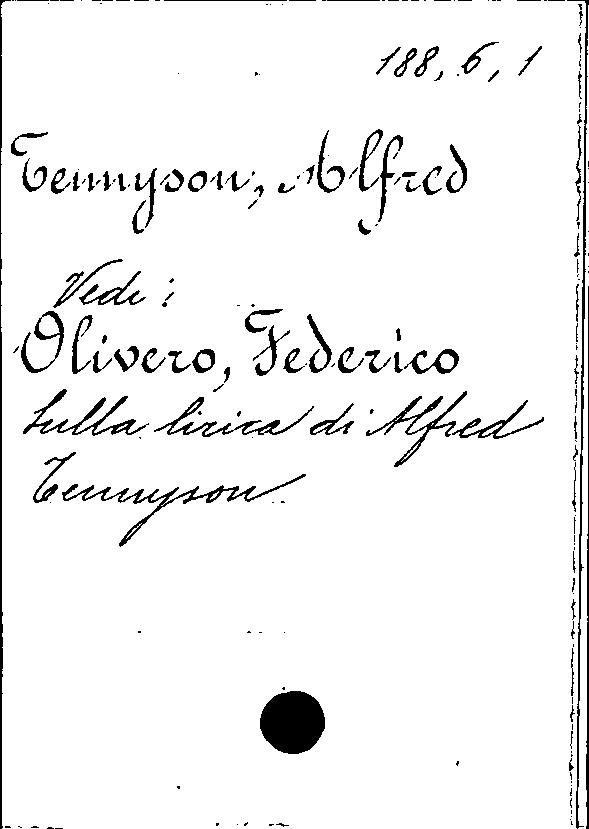 188, 6, 1
Tennyson, Alfred
Vedi:
Olivero, Federico
Sulla lirica di Alfred
Tennyson